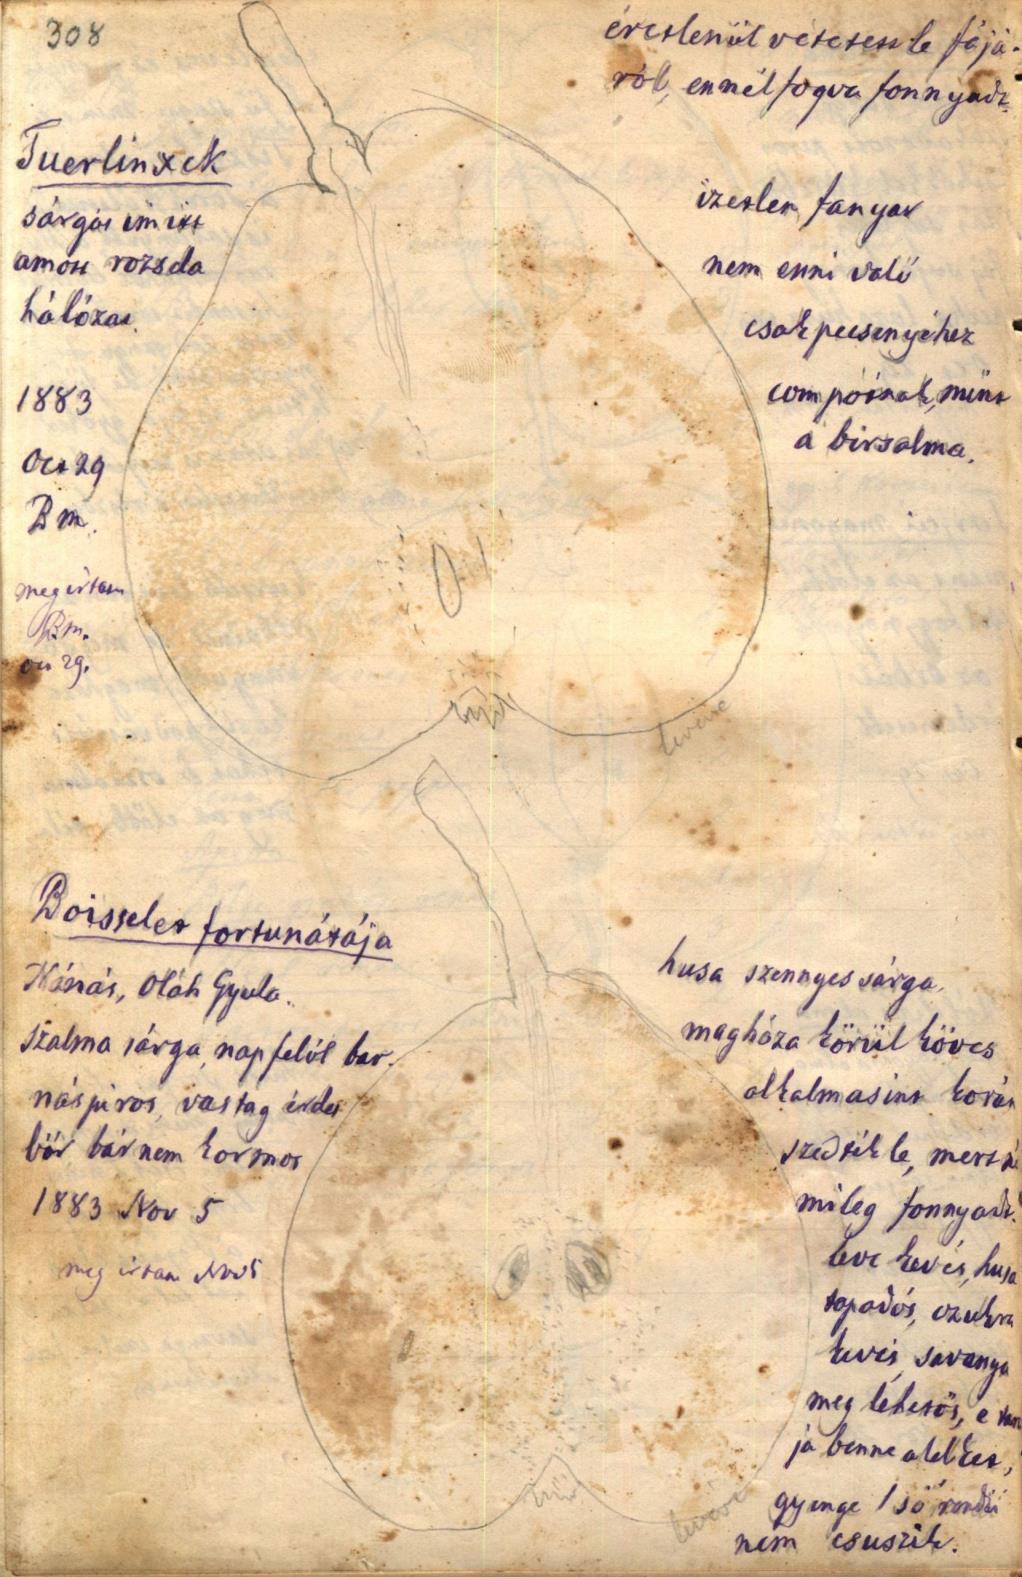 308
éretlenül vétetett le fájá-
ról, ennélfogva fonnyadt
Tuerlinxck
sárgás
amott rozsda
hálózat.
1883
Oct 29
Bm.
megirtam
Bm.
oct 29.
izetlen, fanyar
nem enni való
csak pecsenyéhez
compótnak, mint
a birsalma.
kivéve
Boisselet fortunátája
Kánás, Oláh Gyula.
szalma sárga, nap felől bar-
náspiros, vastag érdes
bőr bár nem kormos
1883 Nov 5
meg irtam Nov 5
husa szennyes sárga.
magháza körül köves
alkalmasint korán
szedték le, mert né
mileg fonnyadt.
leve kevés, husa
tapadós, czukra
kevés, savanya
meg lehetős, e
ja benne
gyenge 1ső rendű
nem csuszik.
kivéve